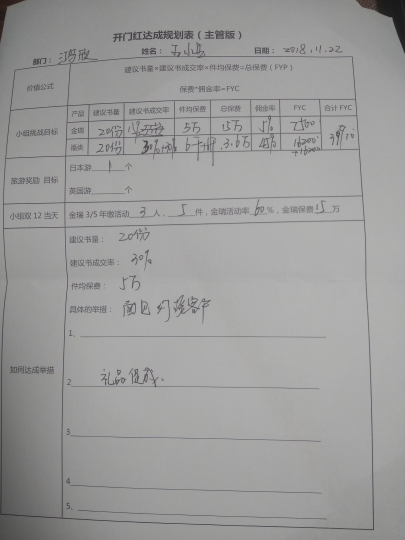 开门红达成规划表（主管版）
部门： 姓名：王小 日期：2018.11.22
价值公式
建议书量×建议书成交率×件均保费=总保费（FYP）
保费*佣金率=FYC
小组挑战目标
产品 建议书量 建议书成交率 件均保费 总保费 佣金率 FYC 合计 FYC
金瑞 20份 5万 15万 5% 7500
福 20份 30% 6千 3.6万 45% 16200
旅游奖励 目标
日本游 1 个
英国游 个
小组双 12 当天 金瑞 3/5 年缴活动 3 人， 5 件，金瑞活动率 60 %，金瑞保费 15 万
如何达成举措
建议书量： 20份
建议书成交率： 30%
件均保费： 5万
具体的举措： 面见 约客户
1、
2 礼品促成.
3
4
5、